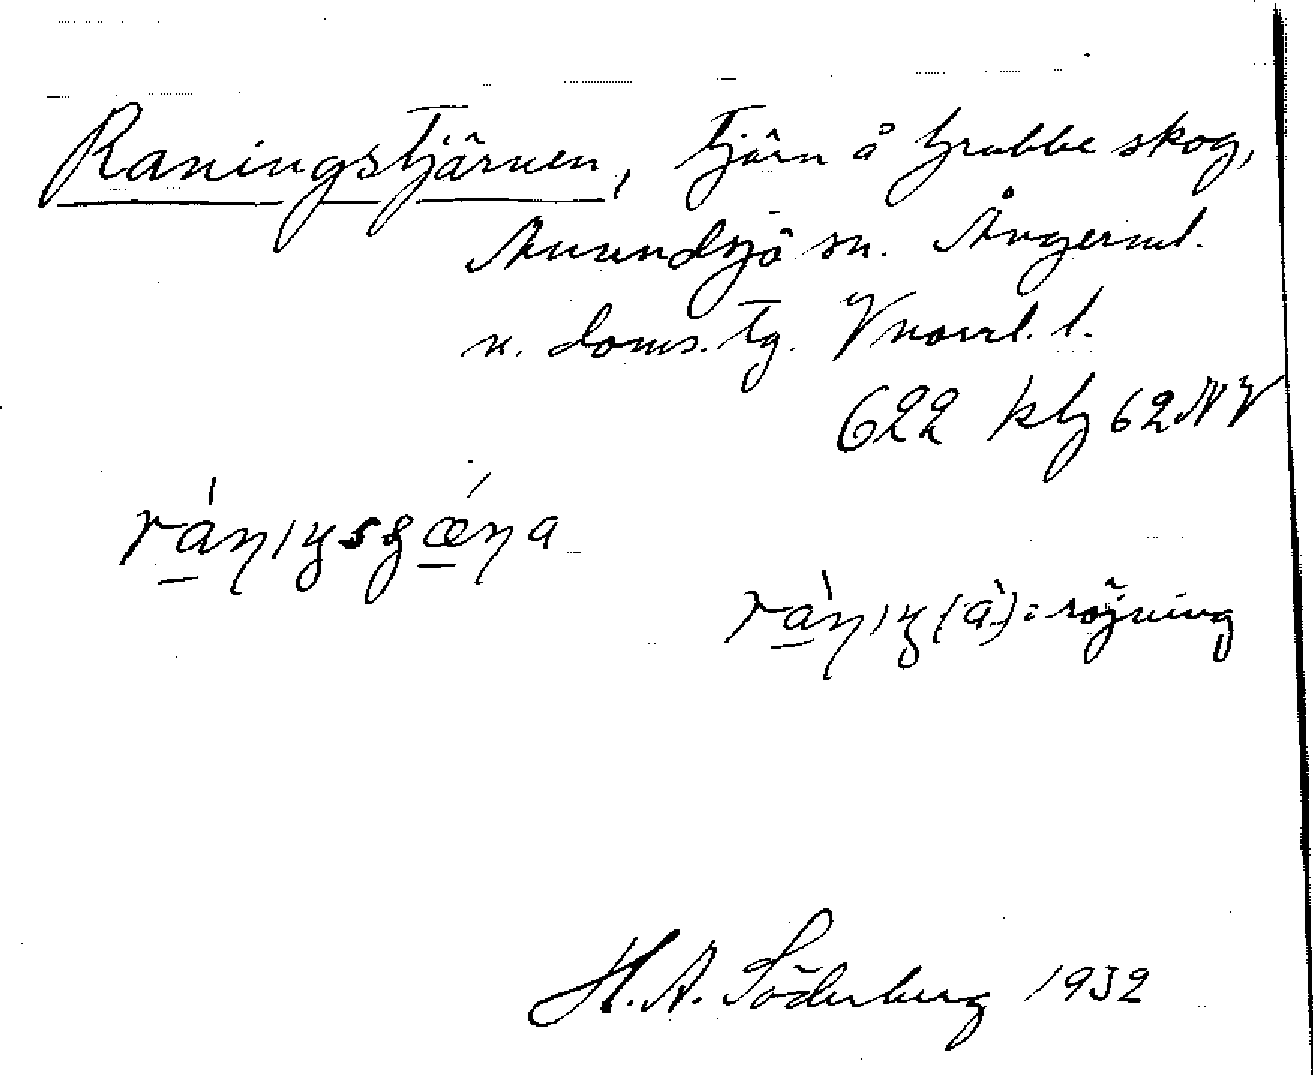 Raningstjärnen, tjärn å Grubbe skog,
Anundsjö sn. Ångerml.
n. doms. tg. Vnorrl. l.
622 kbg 62 NV
ránıŋsʂǽna
ránıŋ(a) = röjning
H. A. Söderberg 1932